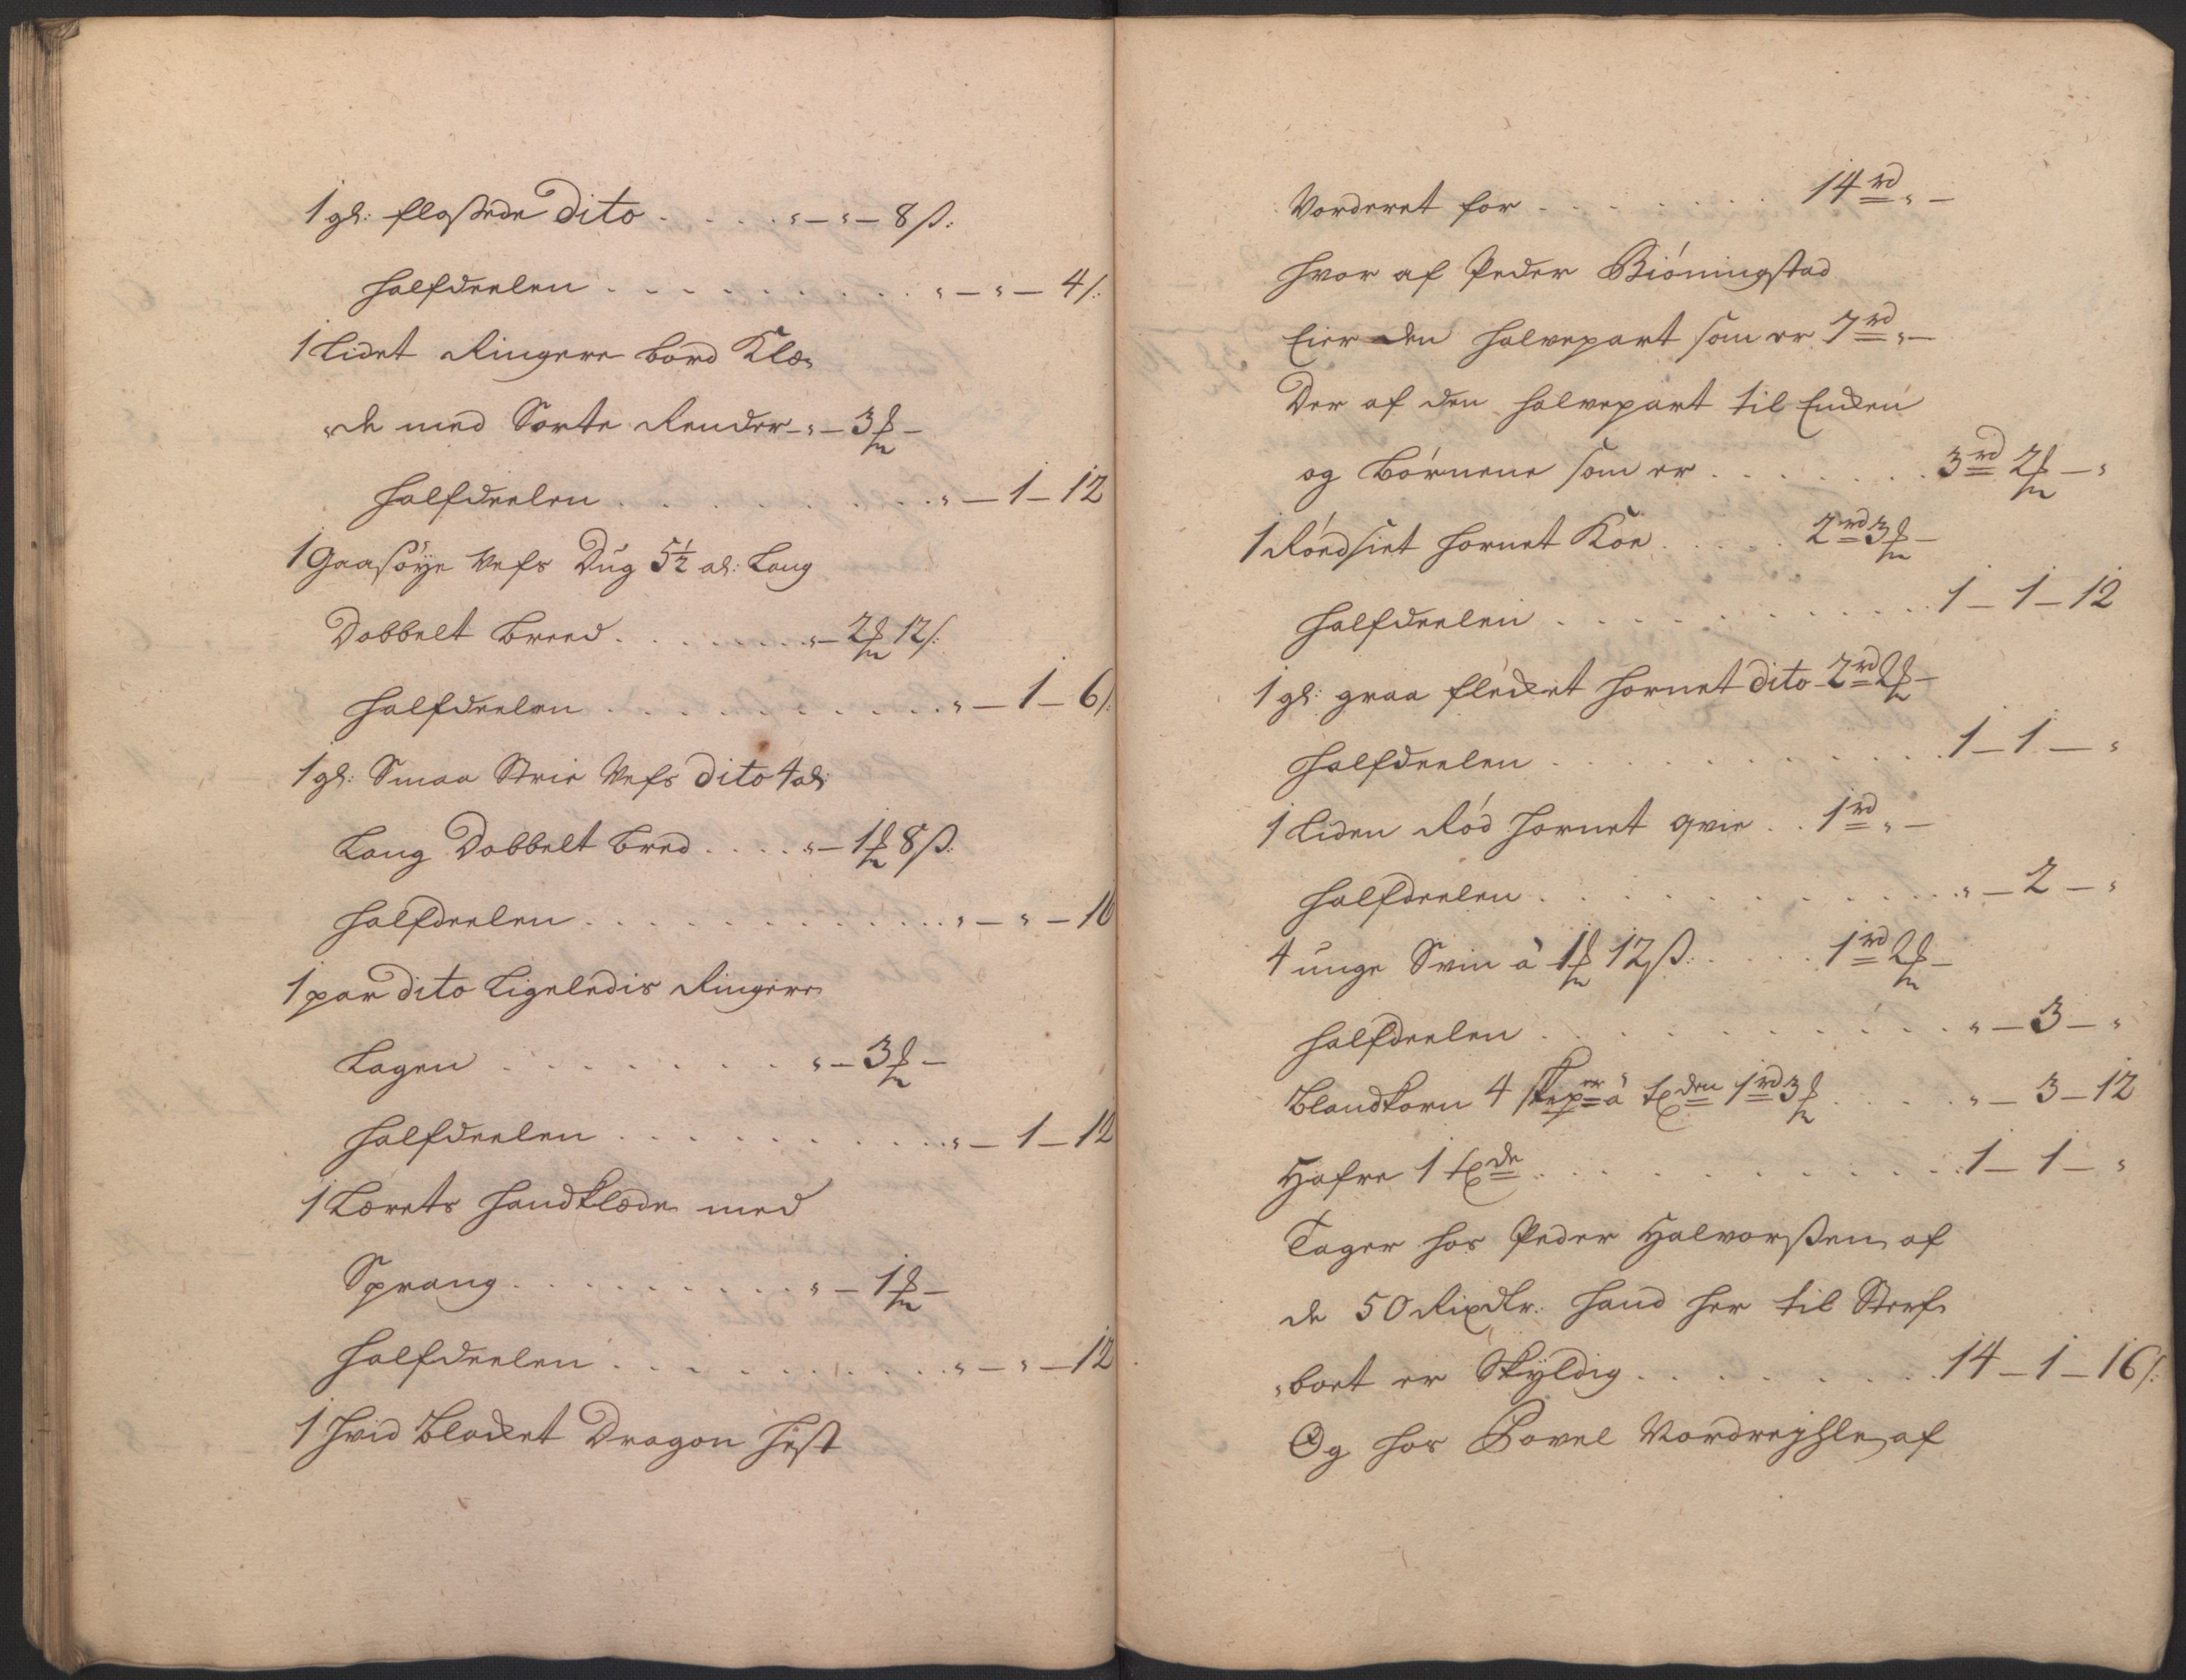 1 gl: flossede dito . . . . . „ – „ – 8 ß:
halfdeelen . . . . . . . . . . „ – „ – 4 ß:
1 Lidet Ringere bord Klæ„
„de med Sorte Render – „ – 3 ₰ –
halfdeelen . . . . . . . . . . „ – 1 – 12
1 Gaasöye Vefs Dug 5½ al: Lang
Dobbelt breed . . . . . . . . „ – 2 ₰ 12 ß:
halfdeelen . . . . . . . . . . „ – 1 – 6 ß:
1 gl: Smaa Strie Vefs dito 4 al:
Lang Dobbelt bred . . . . „ – 1 ₰ 8 ß:
halfdeelen . . . . . . . . . . „ – „ – 16
1 par dito Ligeledis Ringere
Lagen . . . . . . . . „ – 3 ₰ –
halfdeelen . . . . . . . . . . „ – 1 – 12
1 Lærets Handklæde med
Sprang . . . . . . . . „ – 1 ₰ –
halfdeelen . . . . . . . . . . „ – „ – 12
1 Hvid Blacket Dragon Hest
Vorderet for . . . . . . . 14 rd „ –
hvor af Peder Biöningstad
Eier den halvepart som er 7 rd „ –
Der af den halvepart til Encken
og börnene som er . . . . . . . 3 rd 2 ₰ – „
1 Rödsiet hornet Koe . . . . . 2 rd 3 ₰ –
halfdeelen . . . . . . . . . . 1 – 1 – 12
1 gl: graa flecket hornet dito 2 rd 2 ₰ –
halfdeelen . . . . . . . . . . 1 – 1 – „
1 Liden Röd hornet qvie . . 1 rd „ –
halfdeelen . . . . . . . . . . „ – 2 – „
4 unge Svin à 1 ₰ 12 ß: . . . . . 1 rd 2 ₰ –
halfdeelen . . . . . . . . . . „ – 3 – „
Blandkorn 4 skepper à tden 1 rd 3 ₰ . . . . „ – 3 – 12
Hafre 1 tde . . . . . . . . . . 1 – 1 – „
Tager hos Peder Halvorßen af
de 50 Rixdlr: hand her til Sterf„
„boet er Skyldig . . . . . . . . 14 – 1 – 16 ß:
Og hos Povel af